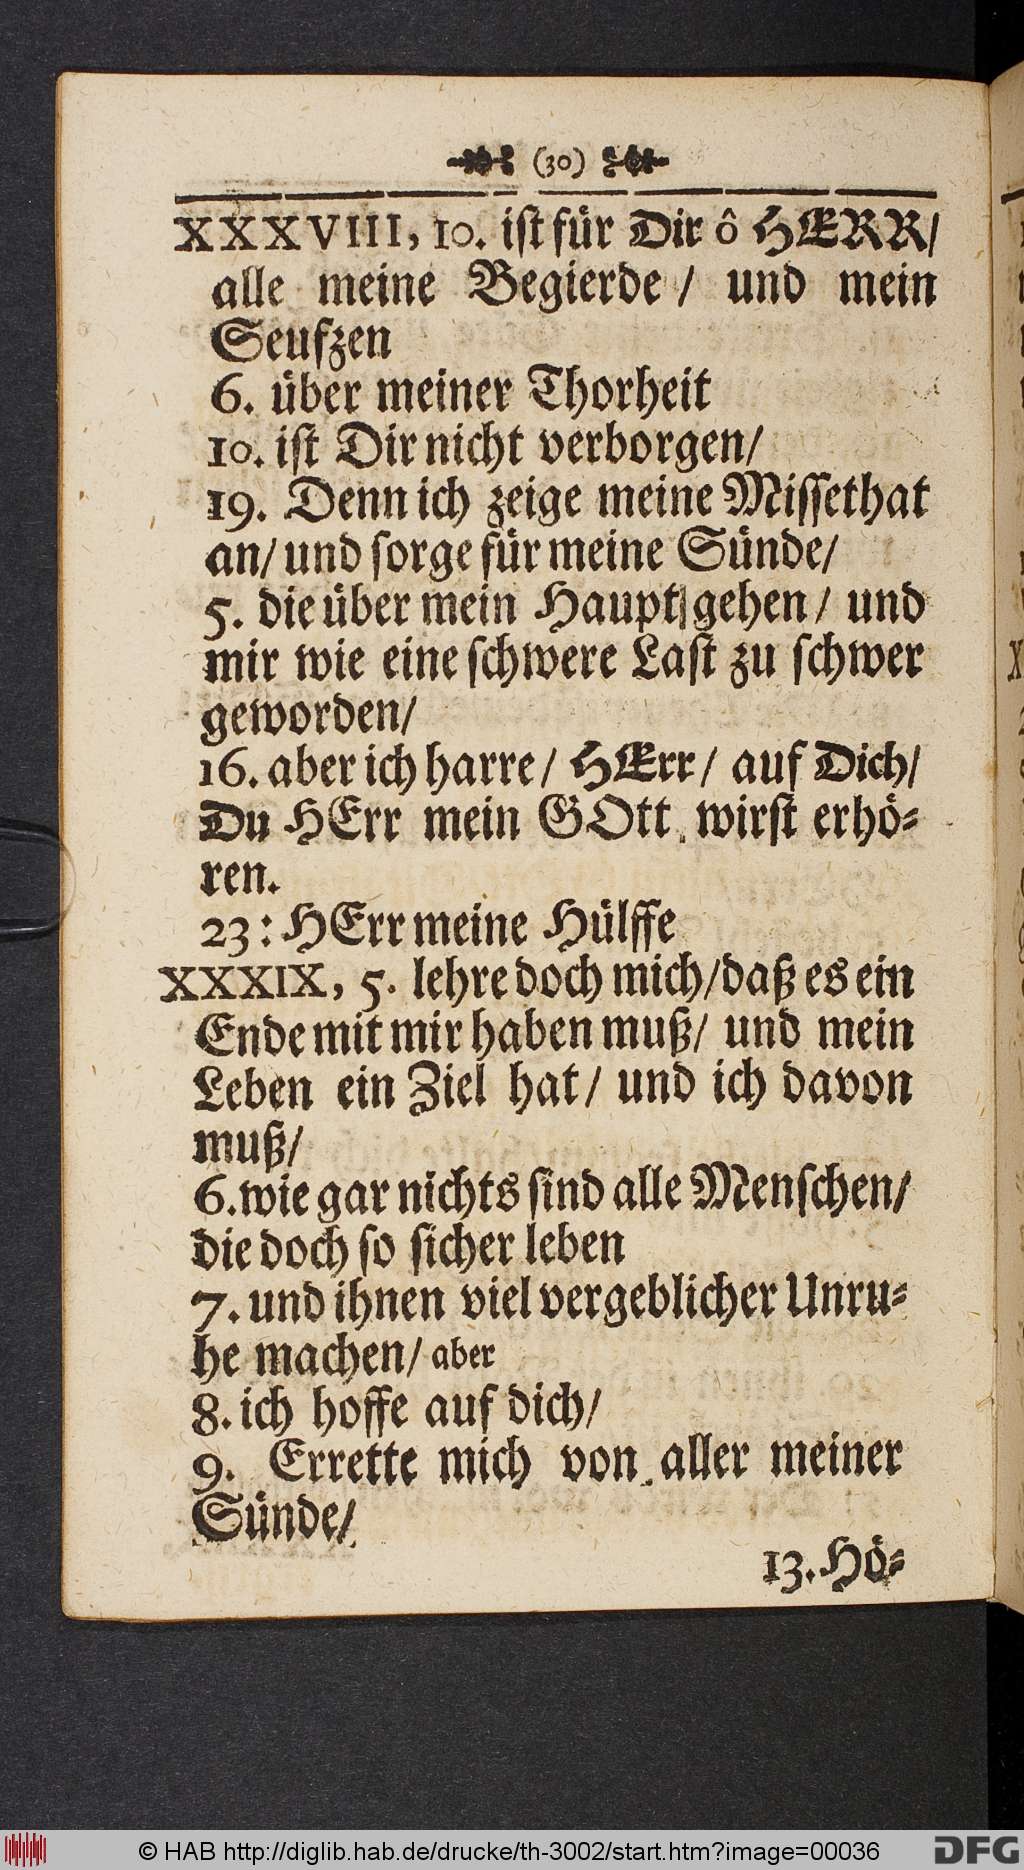 (30)
XXXVIII, 10. ist für Dir ô HERR/
alle meine Begierde / und mein
Seufzen
6. über meiner Thorheit
10. ist Dir nicht verborgen/
19. Denn ich zeige meine Missethat
an/ und sorge für meine Sünde/
5. die über mein Haupt gehen / und
mir wie eine schwere Last zu schwer
geworden/
16. aber ich harre / HErr / auf Dich/
Du HErr mein GOtt wirst erhö-
ren.
23: HErr meine Hülffe
XXXIX, 5. lehre doch mich/daß es ein
Ende mit mir haben muß/ und mein
Leben ein Ziel hat / und ich davon
muß/
6. wie gar nichts sind alle Menschen/
die doch so sicher leben
7. und ihnen viel vergeblicher Unru-
he machen/ aber
8. ich hoffe auf dich/
9. Errette mich von aller meiner
Sünde/
13. Hö-
© HAB http://diglib.hab.de/drucke/th-3002/start.htm?image=00036
DFG